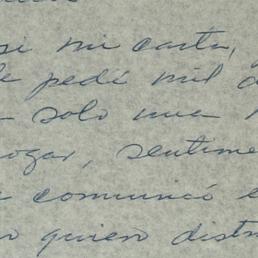 si mi carta,
le pedí mil
solo una
ogar, sentime
comunicó e
quien distr